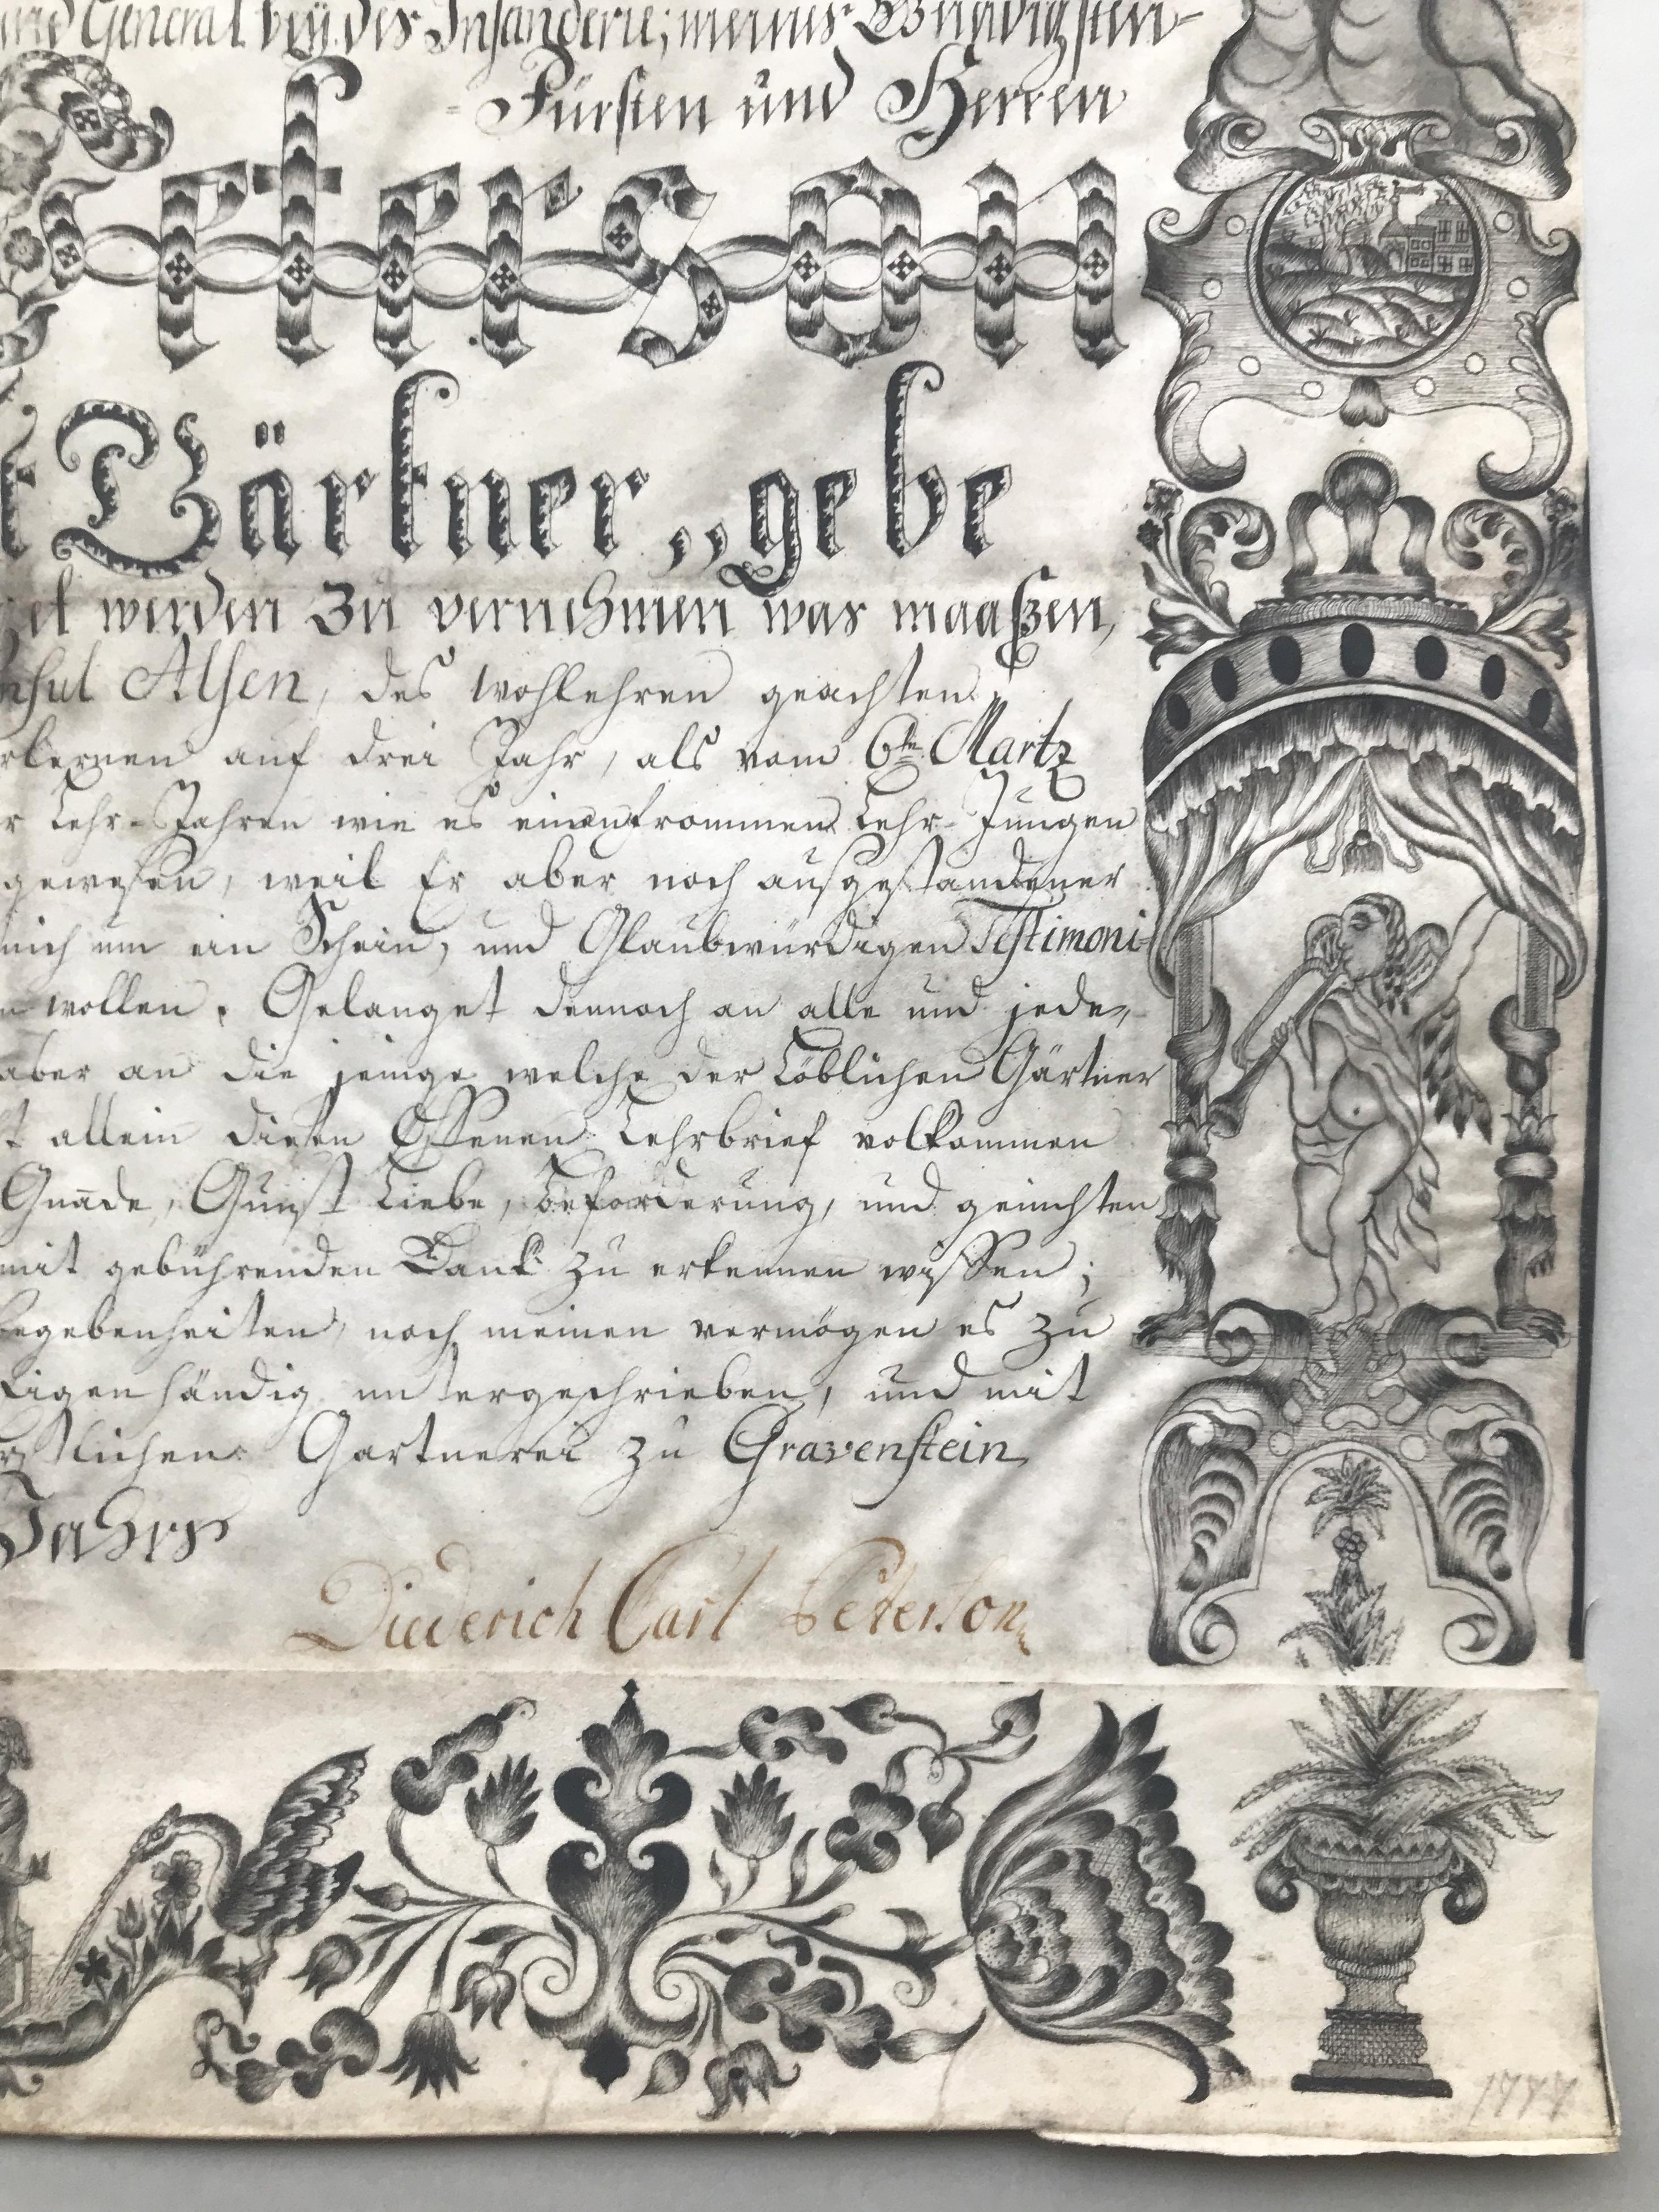 und General bey der Infanderie; meines Gnädigsten
Fürsten und Herren
eterson
Gärtner,, gebe
werden zu vernehmen was maaßen,
nsul Alsen, des wohlehren geachten
erlernen auf drei Jahr, als vom 6te Martz
r Lehr-Jahren wie es einen frommen Lehr-Jungen
gewesen, weil Er aber noch ausgestandener
mich um ein Schein, und Glaubwürdigen Testimoni-
n wollen. Gelanget dennoch an alle und jede,
aber an die jenige welche der Löblichen Gärtner
t allein diesen Offenen Lehrbrief vollkommen
Gnade, Gunst Liebe, Beforderung, und geneichten
mit gebührenden Dank zu erkennen wissen;
begebenheiten, noch meinen vermögen es zu
Eigenhändig untergeschrieben, und mit
rstlichen Gartnerei zu Gravenstein
Jahrs
Diederich Carl Peterson
1777